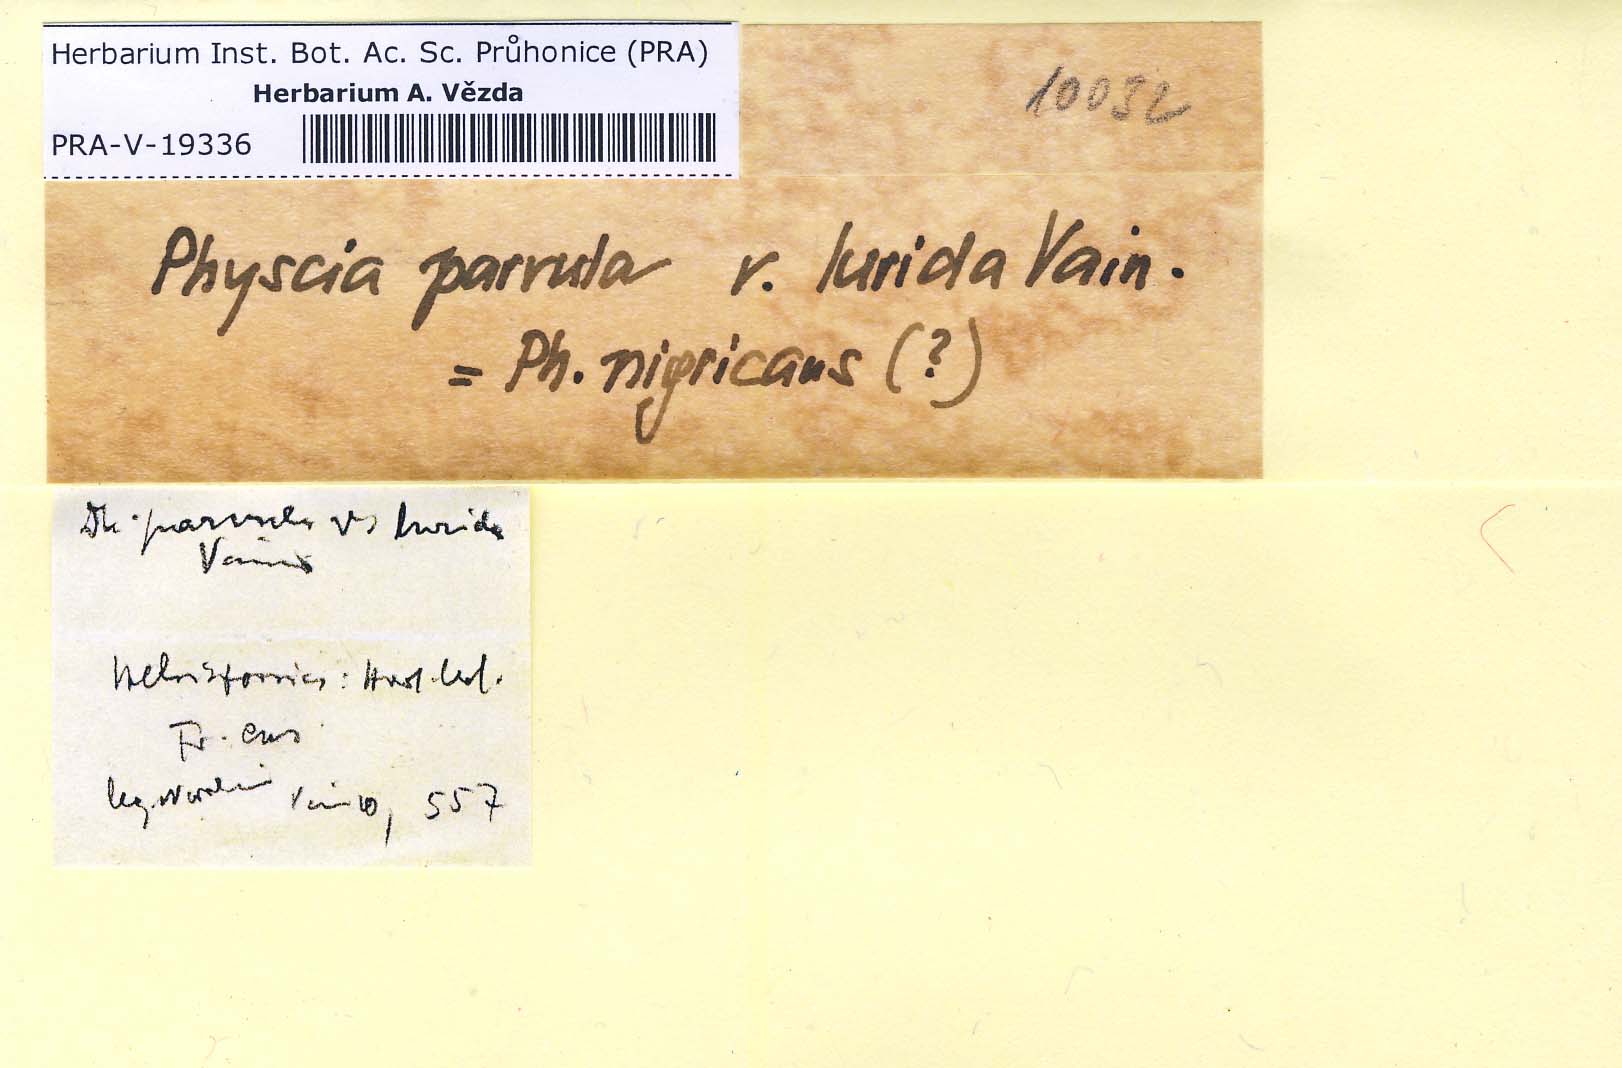 Herbarium Inst. Bot. Ac. Sc. Průhonice (PRA)
Herbarium A. Vězda
PRA-V-19336
10032
Physcia parvula v. lurida Vain.
= Ph. nigricans (?)
Ph. parvula v. lurida
Vainio
: Hort. bot.
leg. Vainio, 557